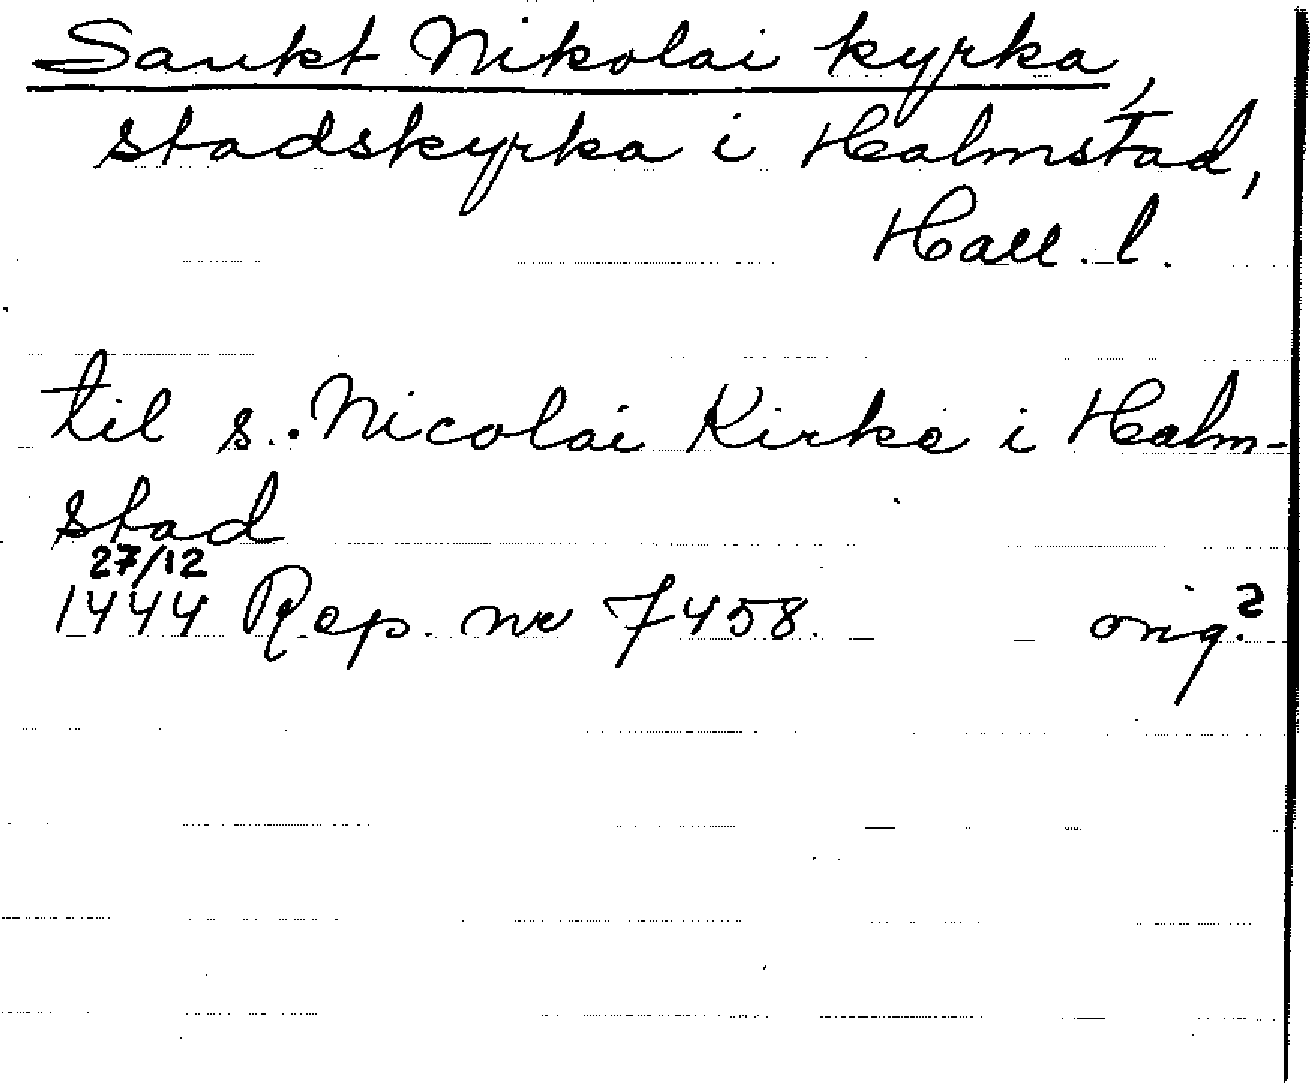 Sankt Nikolai kyrka,
stadskyrka i Halmstad,
Hall. l.
til s. Nicolai Kirke i Halm-
stad
27/12
1444 Rep. nr 7458. orig.?